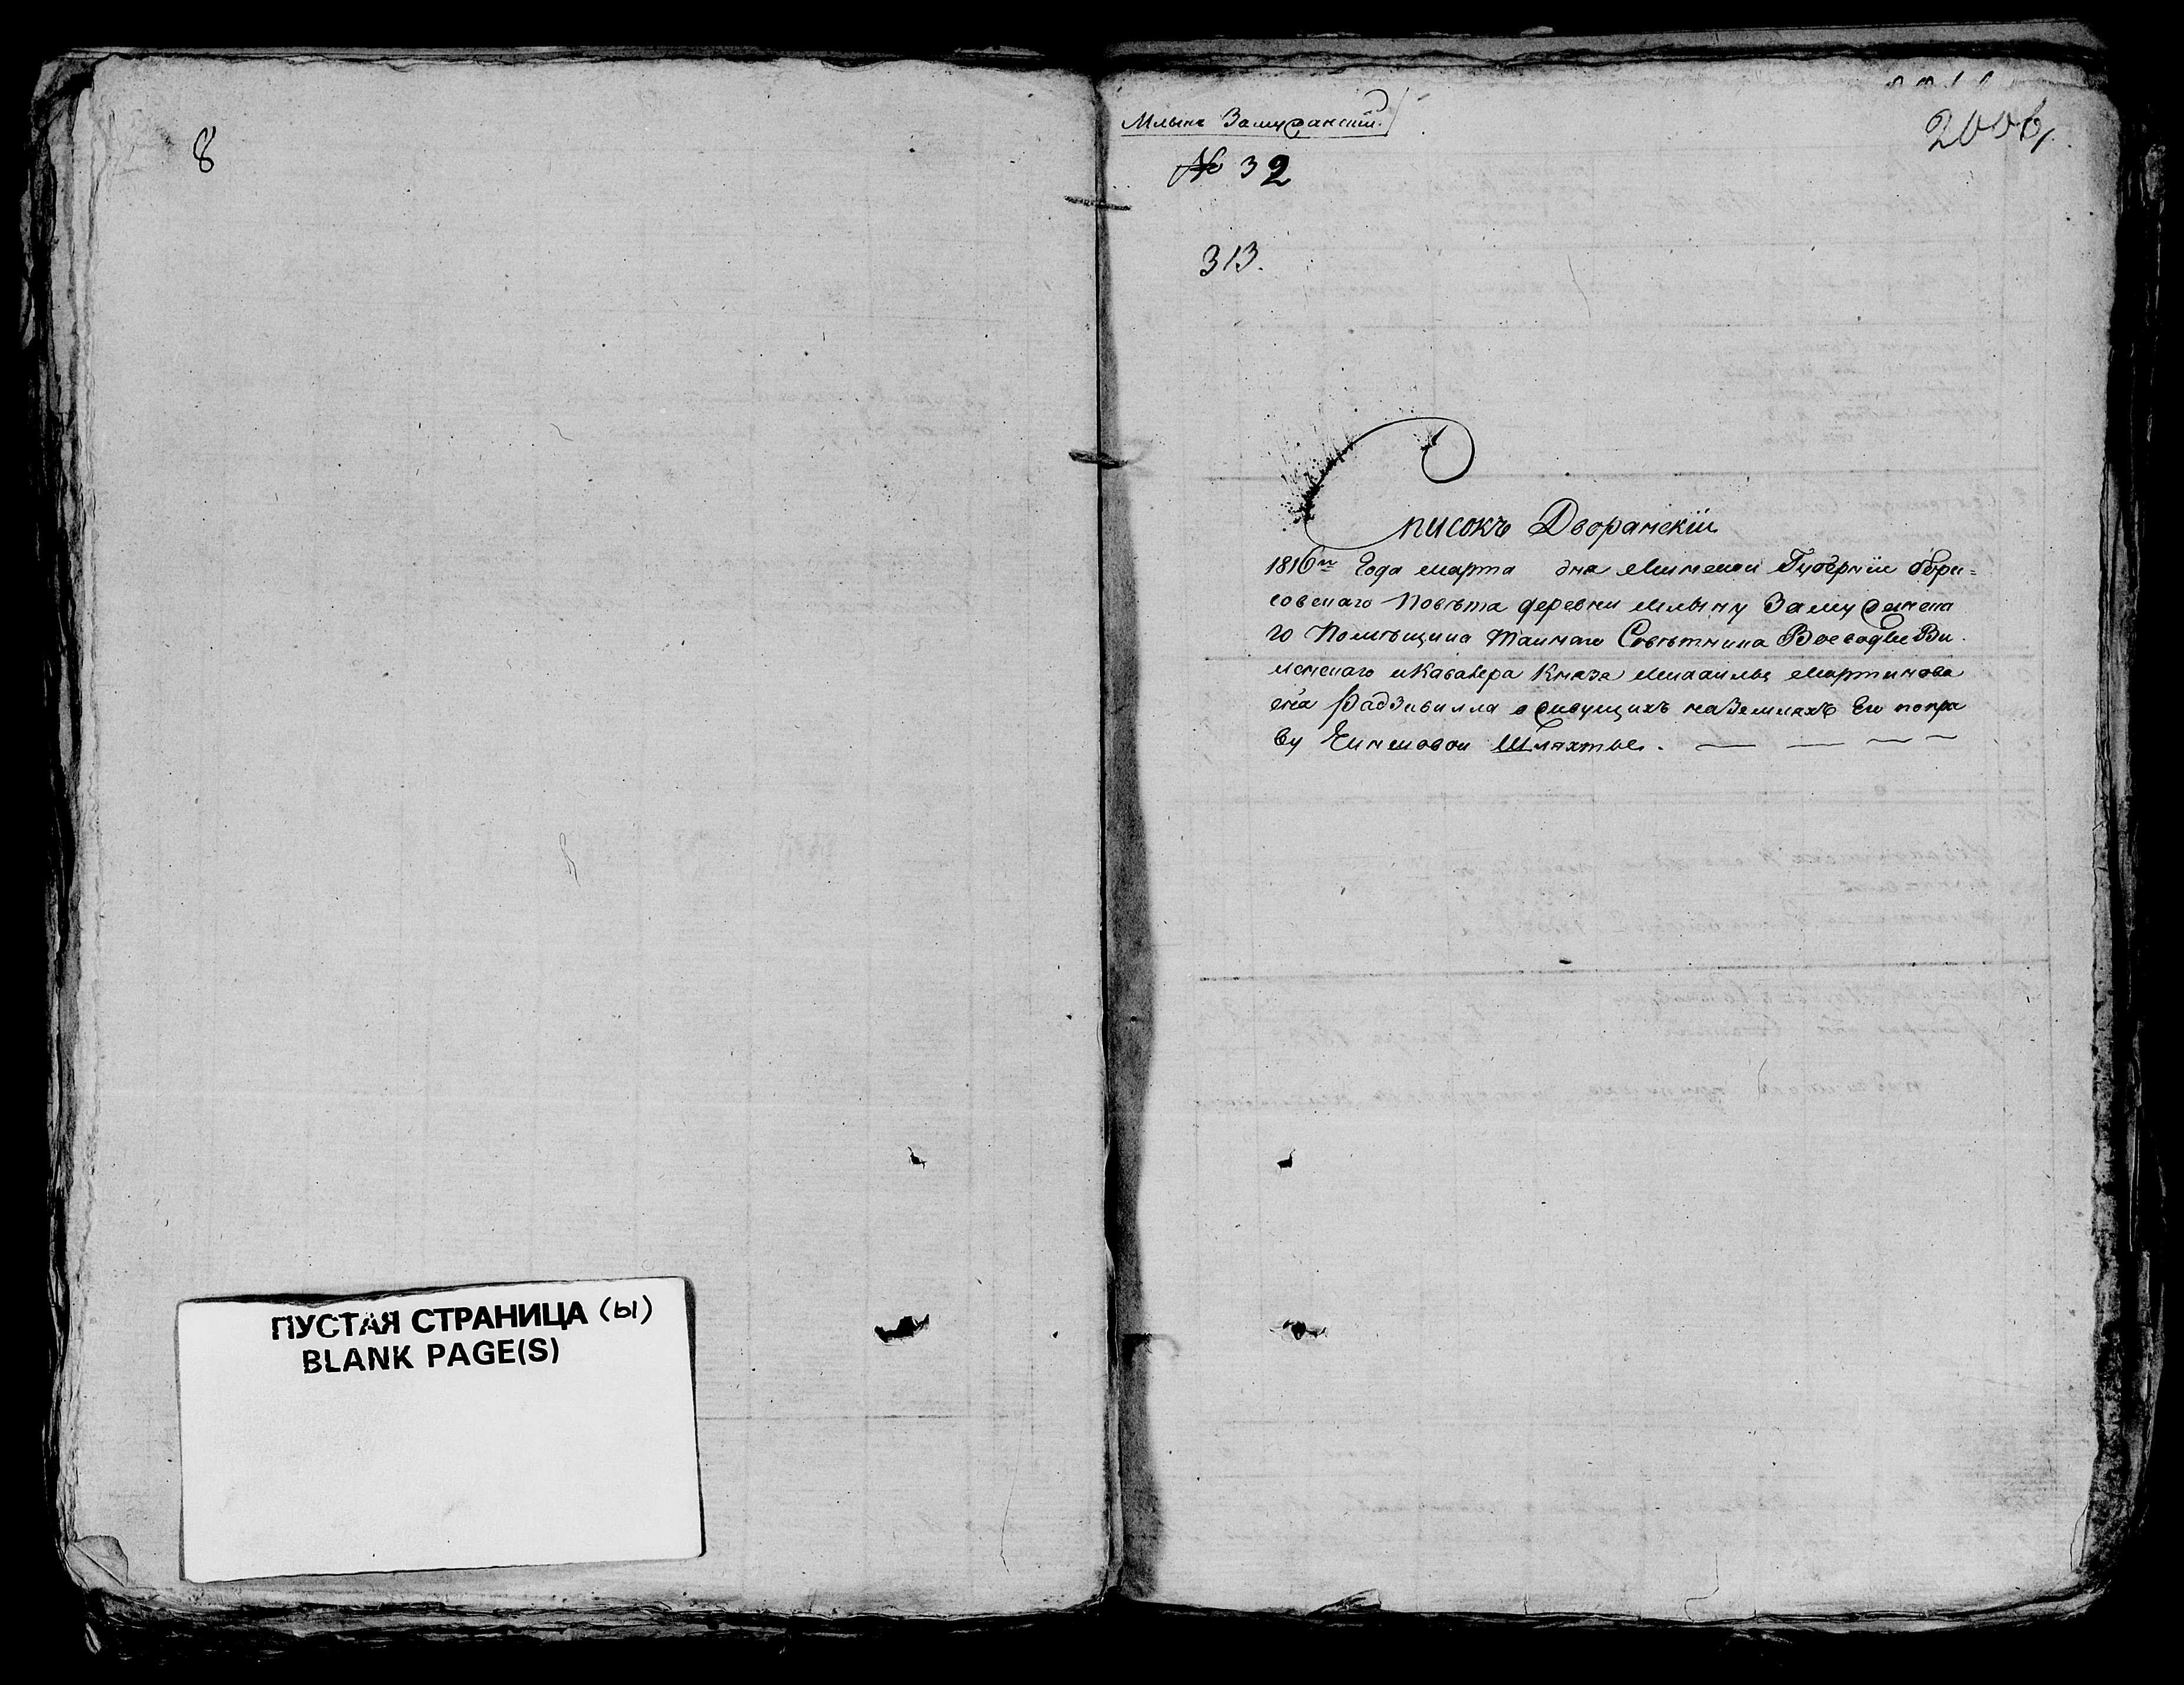 8
ПУСТАЯ СТРАНИЦА (ы)
BLANK PAGE(S)
Млынъ Замужанскій.
№ 32
313.
2006
Списокъ Дворянскій
1816го Года марта дня Минской Губерніи Бори=
совскаго Повѣта деревни Млыну Замужанска
го Помѣщика Тайнаго Совѣтника Воеводы Ви
ленскаго и Кавалера Князя Михаила Мартинова
сна Радзивилла о жиущихъ на Земляхъ Его по пра
ву Чиншовои Шляхты.